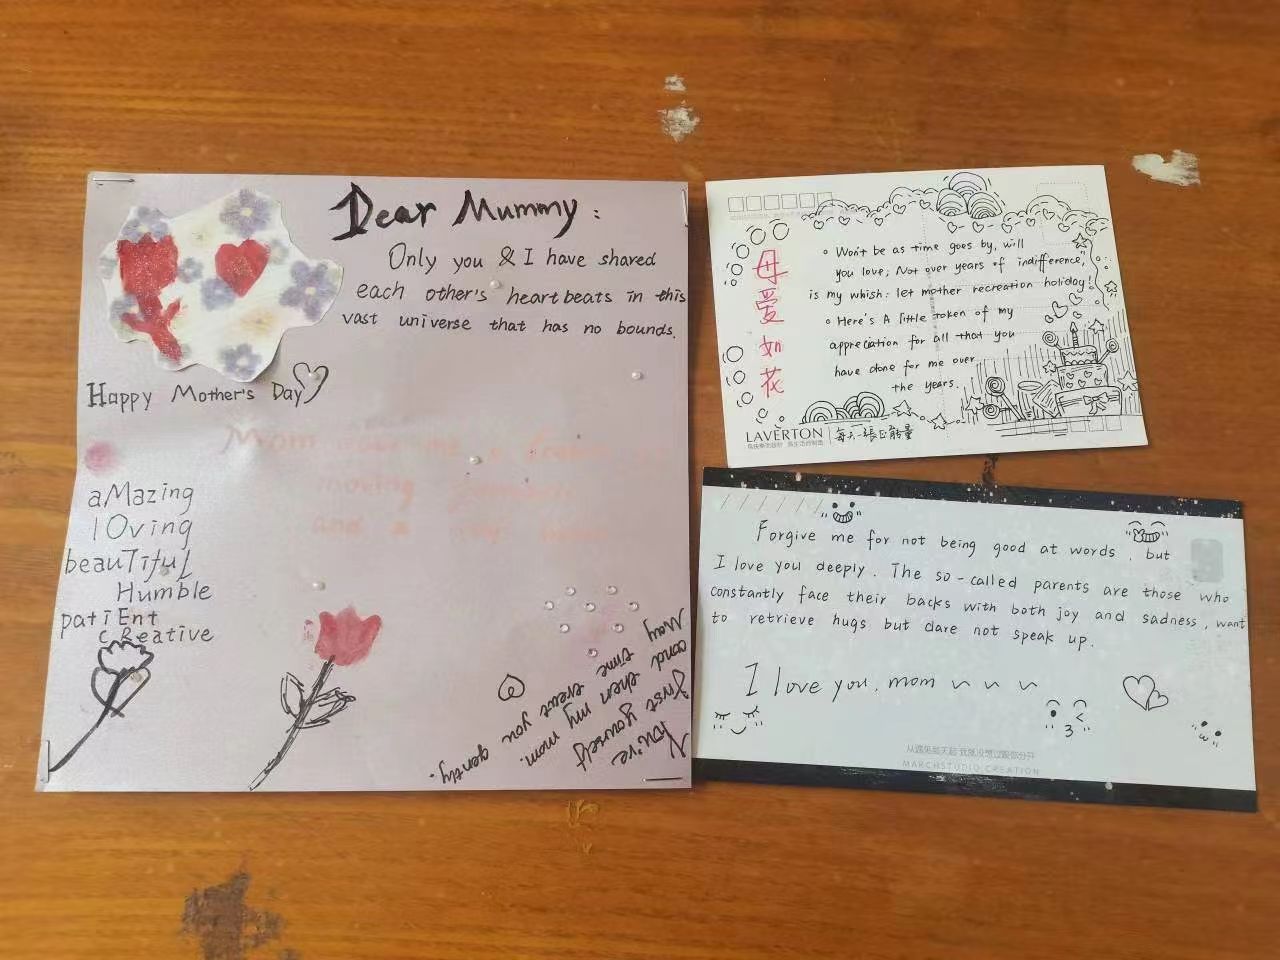 Dear Mummy:
Only you & I have shared
each other's heartbeats in this
vast universe that has no bounds.
Happy Mother's Day
Mom
and a
aMazing
lOving
beauTiful
Humble
patiEnt
cReative
You're
first yourself
and then my mom.
May time treat you gently.
母
爱
如
花
Won't be as time goes by, will
you love; Not over years of indifference,
is my whish: let mother recreation holiday!
Here's A little token of my
appreciation for all that you
have done for me over
the years.
LAVERTON 每天一張正能量
Forgive me for not being good at words, but
I love you deeply. The so-called parents are those who
constantly face their backs with both joy and sadness, want
to retrieve hugs but dare not speak up.
I love you, mom
从遇见那天起 我就没想过跟你分开
MARCHSTUDIO CREATION